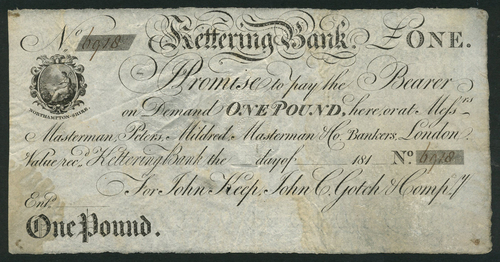 No. 6918 Kettering Bank. £ONE.
NORTHAMPTON-SHIRE
I Promise to pay the Bearer
on Demand ONE POUND, here, or at Messrs.
Masterman, Peters, Mildred, Masterman & Co, Bankers, London
Value recd. Kettering Bank the day of 181 No 6918
For John Keep, John C. Gotch & Compy.
Entd.
One Pound.